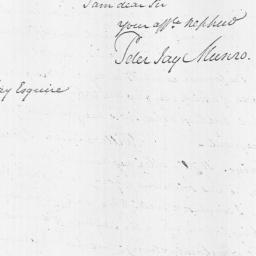 I am dear Sir
your affte Nephew
Peter Jay Munro.
ay Esquire